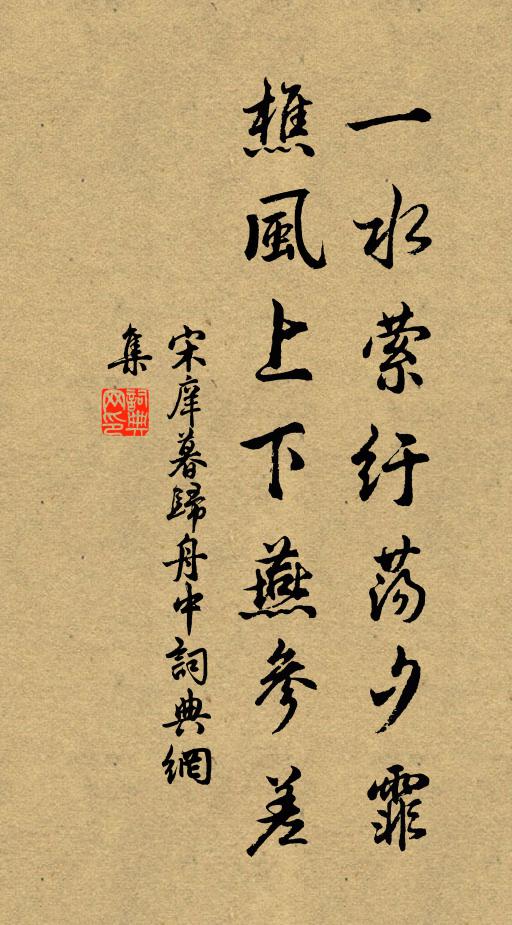 一水縈紆蕩夕霏
樵風上下燕參差
宋庠暮歸舟中詞典網
集
詞典
网印